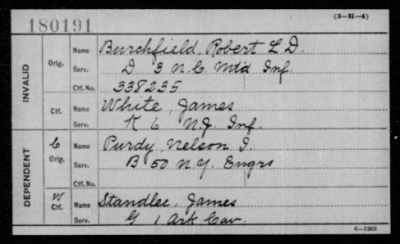 180191
(3-H-4)
INVALID
Orig.
Name Burchfield, Robert L D.
Serv. D 3 N.C Mtd Inf.
Ctf. No. 338235
Ctf.
Name White, James
Serv. K 6 N.J. Inf.
DEPENDENT
C
Orig.
Name Purdy, Nelson I.
Serv. B 50 N.Y. Engrs
Ctf. No.
W
Ctf.
Name Standlee, James
Serv. G 1 Ark Cav.